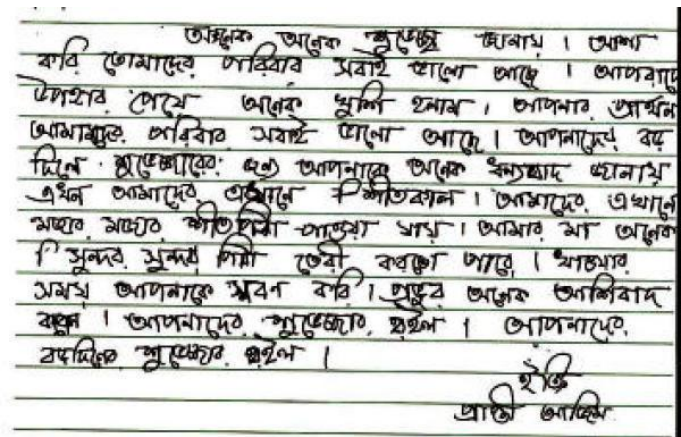 অনেক অনেক শুভেচ্ছা জানায় । আশা
করি তোমাদের পারিবার সবাই ভালো আছে । আপনাদে
উপহার পেয়ে অনেক খুশি হলাম । আপনার প্রার্থন
আমাদের পারিবার সবাই ভালো আছে । আপনাদের বড়
দিনে শুভেচ্ছারের জন্য আপনাকে অনেক ধন্যবাদ জানায়
এখন আমাদের এখানে শীতকাল । আমাদের এখানে
মজার মজার শীতপিঠা পাওয়া যায় । আমার মা অনেক
সুন্দর সুন্দর পিঠা তৈরী করতে পারে । খাওয়ার
সময় আপনাকে স্মরণ করি । প্রভুর অনেক আশিবাদ
করুন । আপনাদের শুভেচ্ছার রইল । আপনাদের
বড়দিনের শুভেচ্ছার রইল ।
ইতি